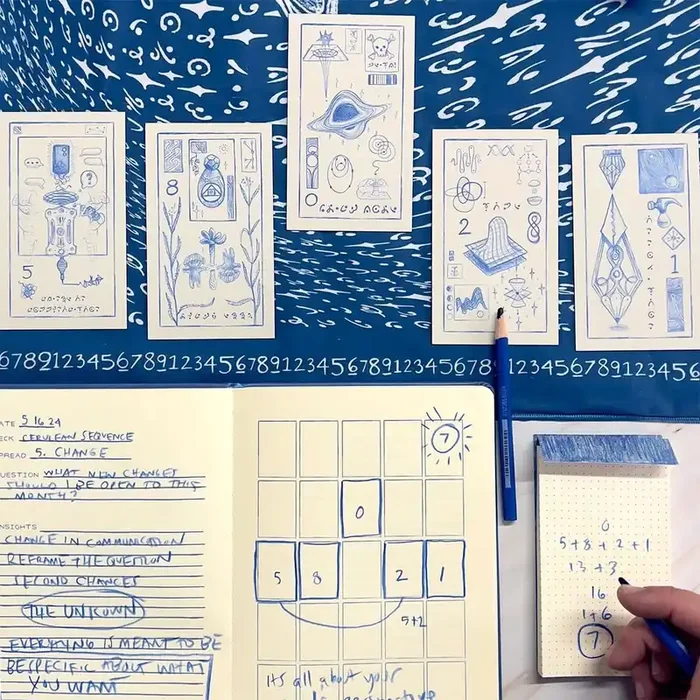 5
8
0
2
8
1
6789123456789123456789123456789123456789123456
ATE 5 16 24
ECK CERULEAN SEQUENCE
PREAD 5. CHANGE
UESTION WHAT NEW CHANGES
SHOULD I BE OPEN TO THIS
MONTH?
NSIGHTS
CHANGE IN COMMUNICATION
REFRAME THE QUESTION
SECOND CHANCES
THE UNKOWN
EVERYTHING IS MEANT TO BE
BE SPECIFIC ABOUT WHAT
YOU WANT
7
0
5 8 2 1
5+2
It's all about your
0
5+8+2+1
13+3
16
1+6
7